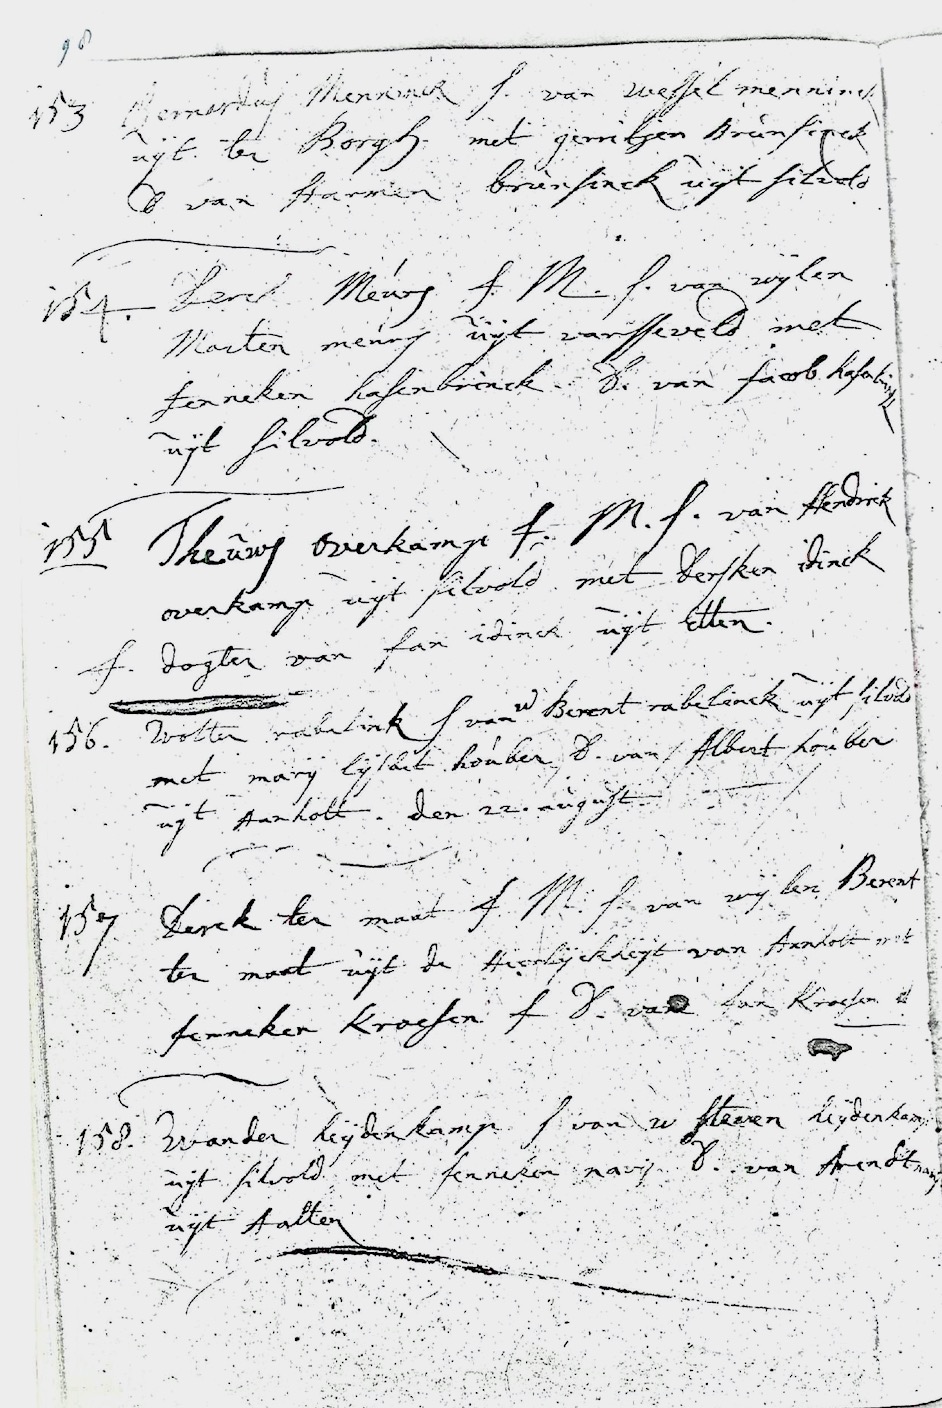 98
153 Bernardus Menninck S. van Wessel menninck
uijt ter Borgh. met gerritjen Brunsinck
D van Harmen brunsinck uijt silvold
154. Derck Meuws f M. S. van wijlen
Marten meuws uijt varsseveld met
fenneken hasenbrinck. D. van Jacob hasenbrinck
uijt silvold.
155 Theuws overkamp f. M. S. van Hendrick
overkamp uijt silvold met Dersken idinck
f. dogter van Jan idinck uijt Etten.
156. Wolter rabelink S van w Berent rabelinck uijt silvold
met marij lijsbet houber D. van Albert houber
uijt Aanholt. den 22. august
157 Derck ter maat f M. S. van wijlen Berent
ter maat uijt de Heerlijckheyt van Aanholt met
fenneken Kroesen f D. van Jan Kroesen
158. Wander heijdenkamp S van w Steven heijdenkamp
uijt silvold met fenneken navis D. van Arendt navis
uijt Aalten